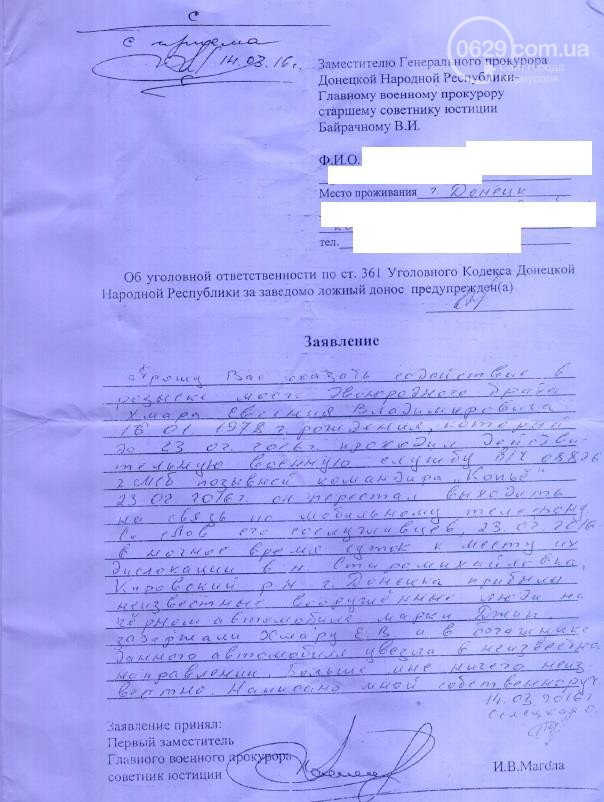 С
с приема
14.03.16г.
0629.com.ua
Заместителю Генерального прокурора
Донецкой Народной Республики-
Главному военному прокурору
старшему советнику юстиции
Байрачному В.И.
Ф.И.О.
Место проживания г. Донецк
тел.
Об уголовной ответственности по ст. 361 Уголовного Кодекса Донецкой
Народной Республики за заведомо ложный донос предупрежден(а)
Заявление
Прошу Вас оказать содействие в
розыске моего двоюродного брата
Хмара Евгения Владимировича
16 01 1978 г рождения, который
до 23 02 2016г. проходил действи
тельную военную службу В/Ч 08826
2 МСБ позывной командира "Копьё"
23 02 2016г. он перестал выходить
на связь по мобильному телефону
Со слов его сослуживцев, 23.02.2016
в ночное время суток к месту их
дислокации в н. Старомихайловка,
Кировский р-н г. Донецка прибыли
неизвестные вооружённые люди на
чёрном автомобиле марки Джип
задержали Хмару Е.В. и в багажнике
данного автомобиля увезли в неизвестно
направлении. Больше мне ничего неиз
вестно. Написано мной собственноруч.
14.03.2016г
Заявление принял:
Первый заместитель
Главного военного прокурора
советник юстиции
И.В.Магола